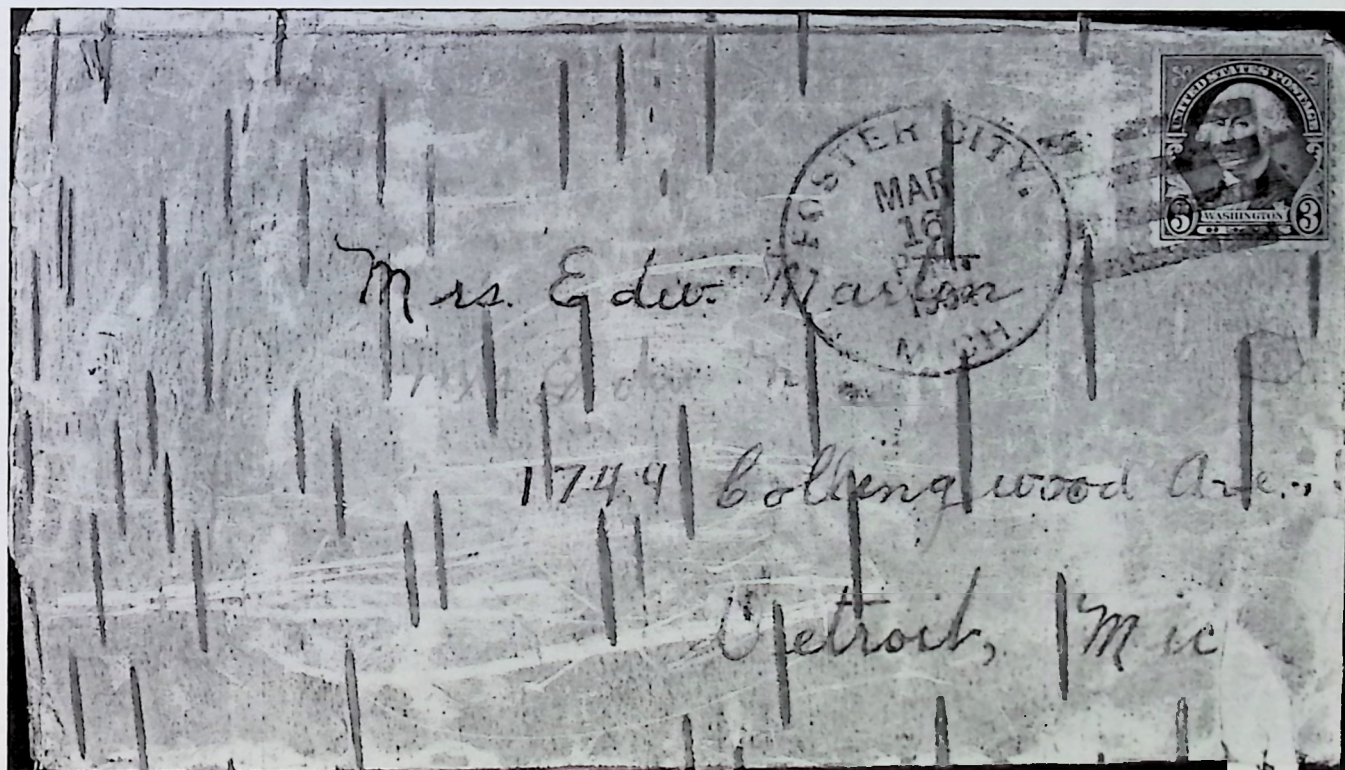 UNITED STATES POSTAGE
3 WASHINGTON 3
FOSTER CITY.
MAR
16
MICH.
Mrs. Edw.
1744 Collingwood Ave.,
Detroit, Mic